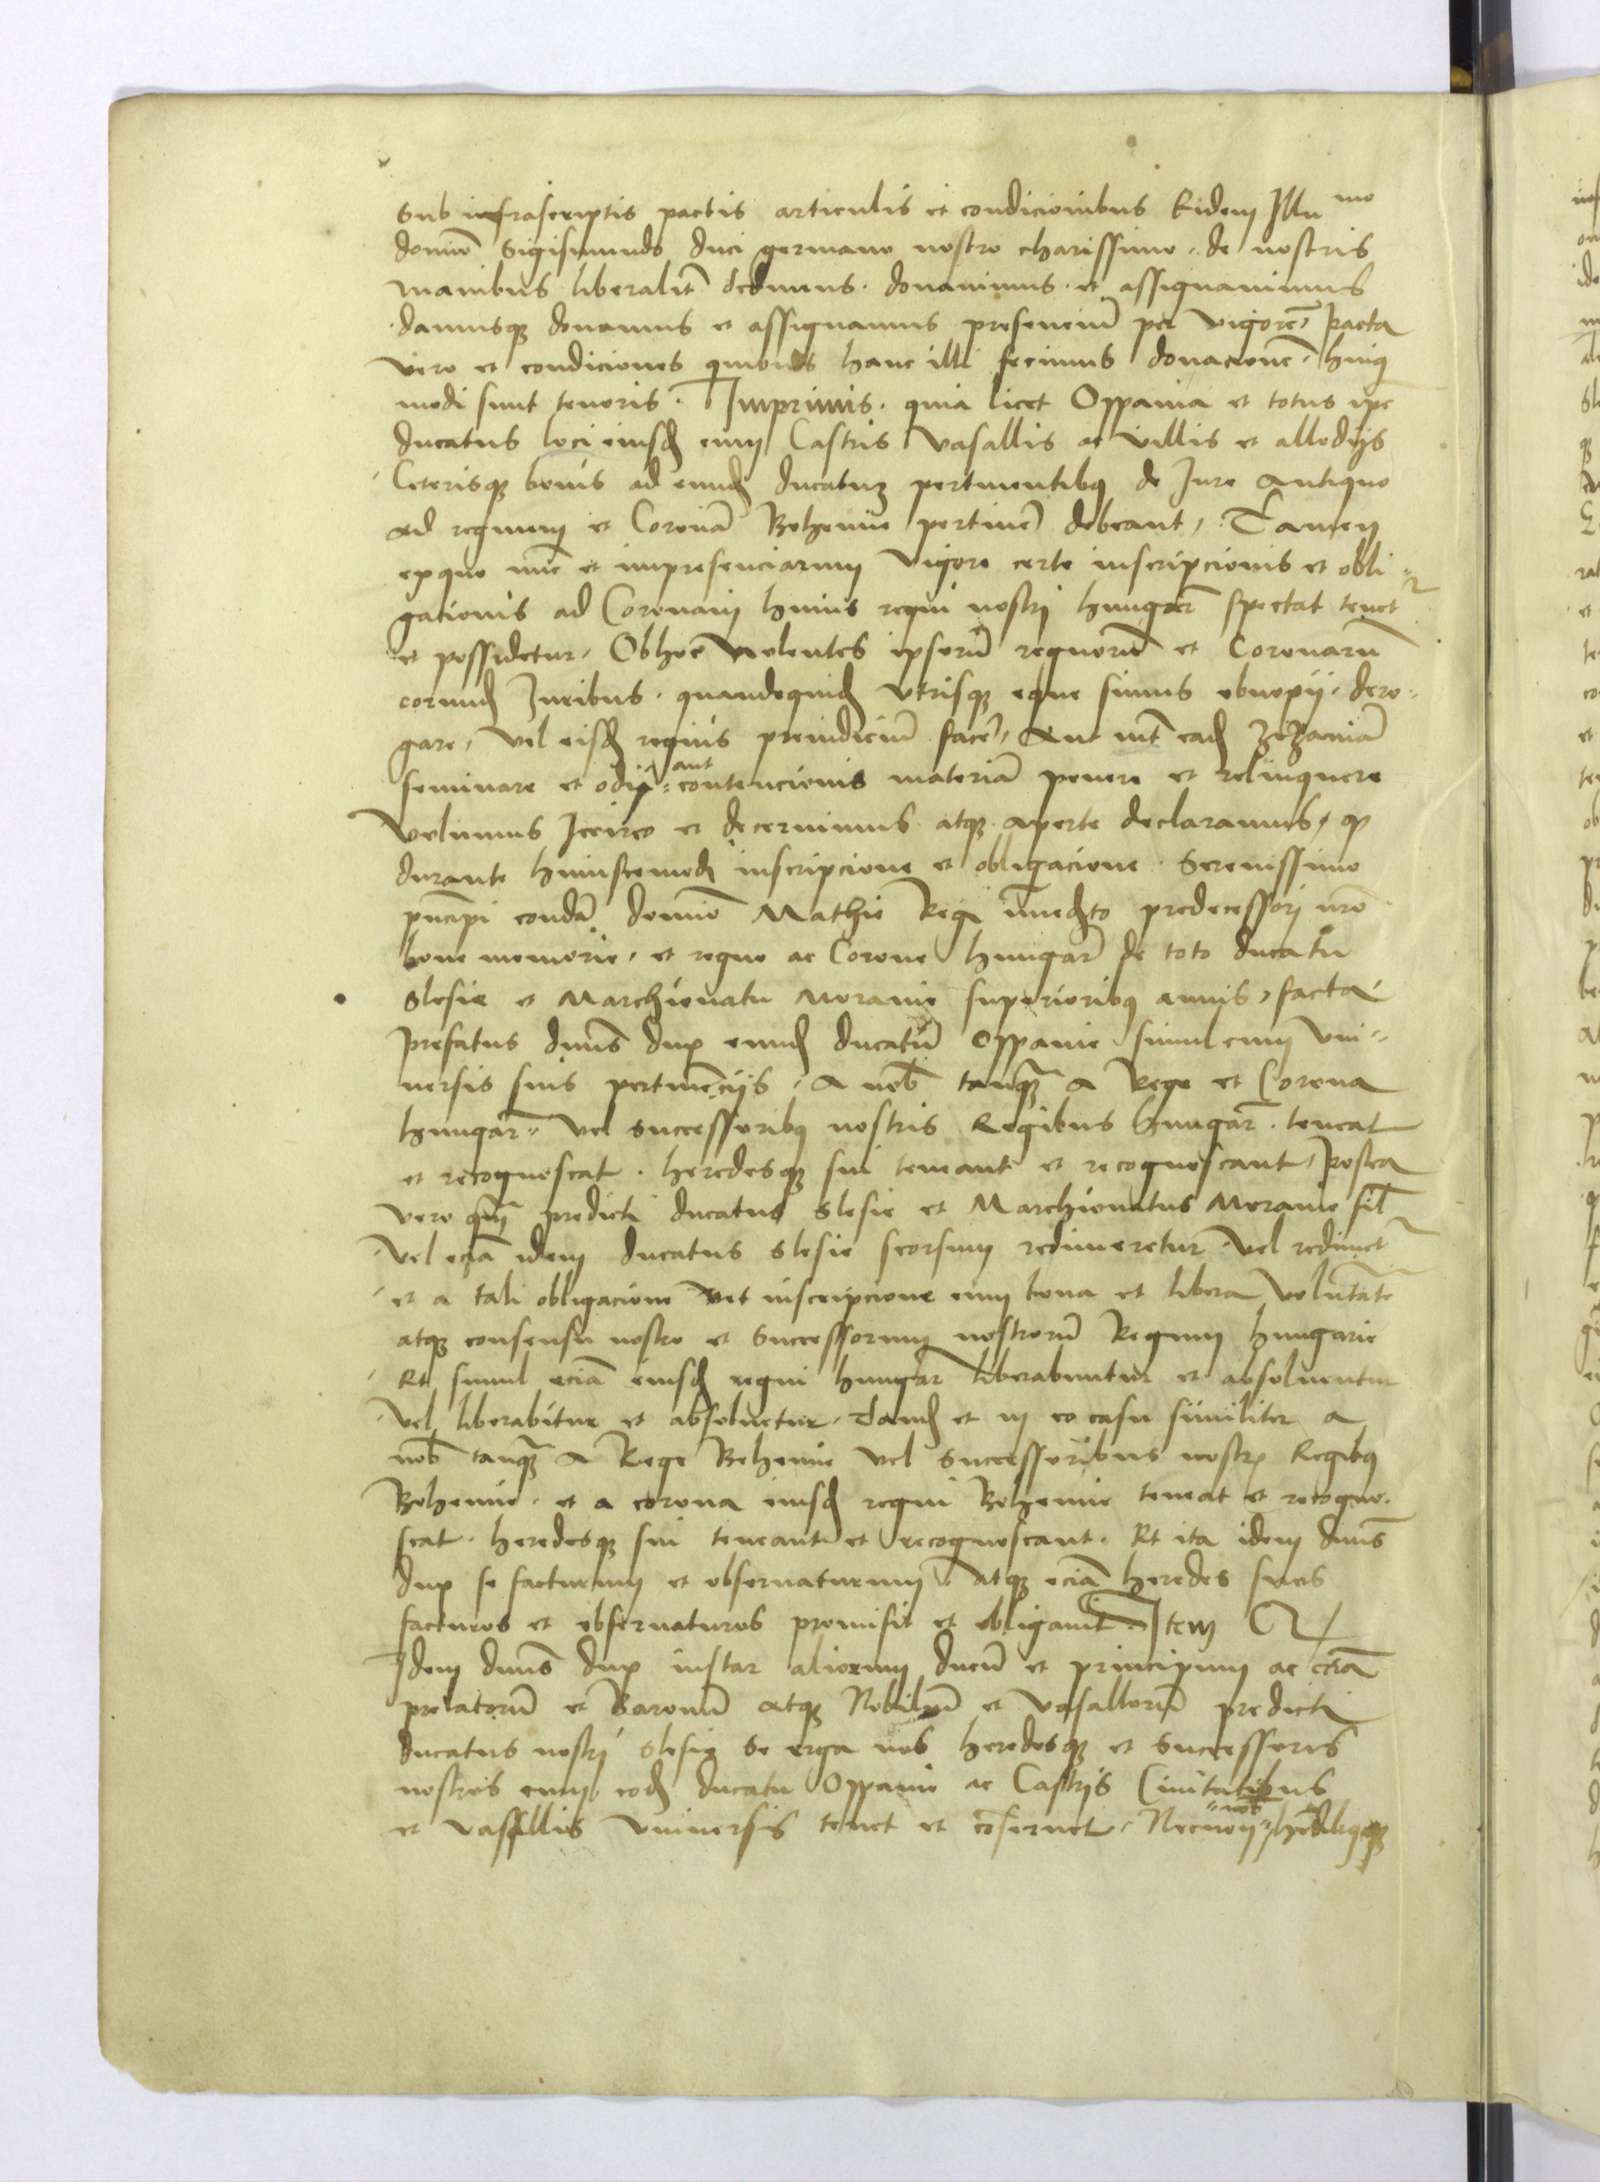 Sub infrascriptis pactis articulis et condicionibus Eidem Illu mo
domiō Sigismundo duci germano nostro charissimo · de nostris
manibus liberalit̄ dedimus · donavimus · et assignavimus
damusqȝ donamus et assignamus presenciū per vigorē, Pacta
vero et condiciones quibus hanc illi fecimus donacionē · huiꝰ
modi sunt tenoris · Imprimis · quia licet Oppavia et totus ipe
ducatus loci eiusđ cum Castris vasallis ac villis et allodijs
Ceterisqȝ bonis ad eundē ducatum pertinentibꝰ de Jure antiquo
ad regnum et Coronā Bohemie pertinē debeant, Tamen
exquo nūc et impresenciarum vigore certe inscripcionis et obli-
gacionis ad Coronam huius regni nostri hungar̄ spectat tenet
et possidetur, Obhoc nolentes ipsorū regnorū et Coronarū
eorundē Juribus · quandoquidē utrisqȝ eque simus obnoxii, dero-
gare, vel eisđ regnis preiudiciū facē, Aut int̄ eađ zizaniā
seminare et odij aut contencionis materiā ponere et relinquere
volumus Iccirco et decernimus atqȝ aperte declaramus, qꝫ
durante huiuscemođ inscripcione et obligacione · Serenissimo
pn̄cipi condā domiō Mathie Regi īmediato predecessori nrō
bone memorie, et regno ac Corone hungar̄ de toto ducatu
Slesie et Marchionatu Moravie superioribꝰ annis, facta
Prefatus dn̄us dux eundē ducatū Oppavie simul cum vni-
versis suis pertinēcijs, a nob̄ tanqȝ a Rege et Corona
hungar̄, vel successoribꝰ nostris Regibus hungar̄ · teneat
et recognoscat · heredesqȝ sui teneant et recognoscant, Postea
vero qn̄ predicti ducatus Slesie et Marchionatus Moravie sil̄
vel eciā idem ducatus Slesie seorsum redimeretur vel redimet
et a tali obligacione vel inscripcione cum bona et libera voluntate
atqȝ consensu nostro et Successorum nostrorū Regum hungarie
Et simul eciā eiusđ regni hungar̄ liberabuntur et absoluentur
vel liberabitur et absoluetur · Tandē et in eo casu similiter a
nob̄ tanqȝ a Rege Bohemie vel Successoribus nostr̄ Regibꝰ
Bohemie · et a corona eiusđ regni Bohemie teneat et recogno-
scat · heredesqȝ sui teneant et recognoscant · Et ita idem dn̄us
dux se facturum et obseruaturum atqȝ eciā heredes suos
facturos et obseruaturos promisit et obligauit Item
Idem dn̄us dux instar aliorum ducū et principum ac eciā
prelatorū et Baronū atqȝ Nobiliū et vasallorū predicti
ducatus nostri Slesie se erga nos heredesqȝ et Successores
nostros cum eođ ducatu Oppavie ac Castris Ciuitatibus
et vasallis vniuersis tenet et cōseruet · Necnon nob̄ hēdibꝰqȝ